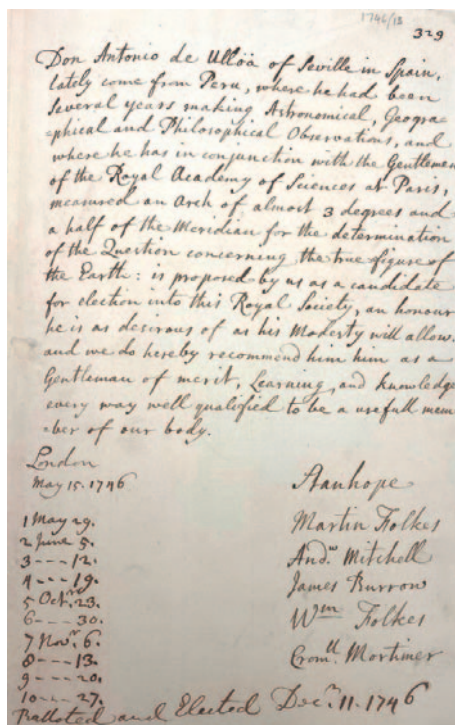 1746/13
329
Don Antonio de Ullöa of Seville in Spain,
lately come from Peru, where he had been
several years making Astronomical, Geogra=
=phical and Philosophical Observations, and
where he has in conjunction with the Gentlemen
of the Royal Academy of Sciences at Paris,
measured an Arch of almost 3 degrees and
a half of the Meridian for the determination
of the Question concerning the true figure of
the Earth: is proposed by us as a candidate
for election into this Royal Society, an honour
he is as desirous of as his Modesty will allow.
and we do hereby recommend him him as a
Gentleman of merit, Learning, and knowledge
every way well qualified to be a usefull mem
=ber of our body.
London
May 15. 1746
Stanhope
1 May 29.
Martin Folkes
2 June 5.
3 --- 12.
And.w Mitchell
4 --- 19.
James Burrow
5 Octr. 23.
6 --- 30.
Wm Folkes
7 Novr. 6.
8 --- 13.
Crom.ll Mortimer
9 --- 20.
10 --- 27.
Balloted and Elected Decr. 11. 1746